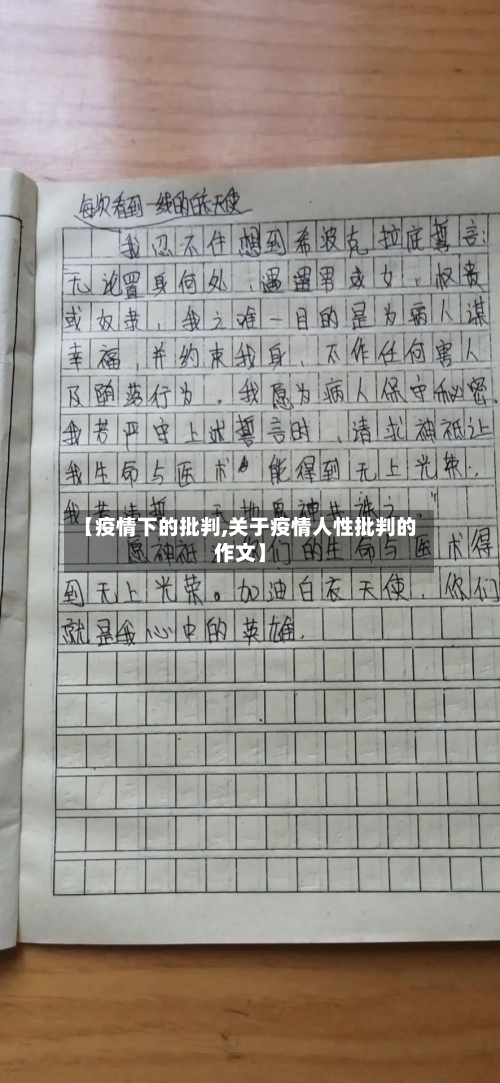 每次看到一线的白衣天使
我忍不住想到希波克拉底誓言:
无论置身何处,遇男或女,权贵
或奴隶,我之唯一目的是为病人谋
幸福,并约束我身,不作任何害人
及堕落行为。我愿为病人保守秘密。
我若严守上述誓言时,请求神祇让
我生命与医术能得到无上光荣:,
我若违誓,天地鬼神共诛之。”
【疫情下的批判,关于疫情人性批判的
作文】
愿神祇 们的生命与医术得
到无上光荣。加油白衣天使,你们
就是我心中的英雄.